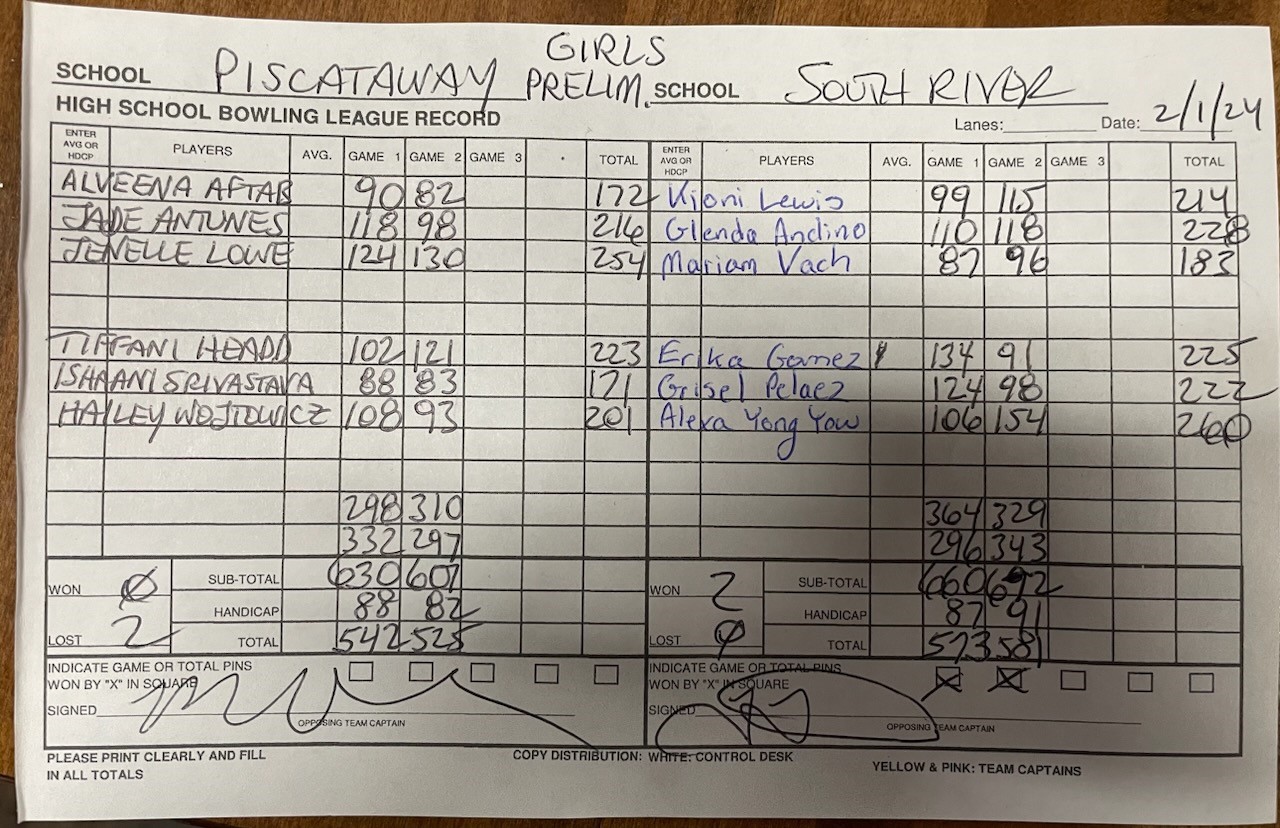 GIRLS
SCHOOL PISCATAWAY PRELIM. SCHOOL SOUTH RIVER
HIGH SCHOOL BOWLING LEAGUE RECORD Lanes: Date: 2/1/24
ENTER AVG OR HDCP PLAYERS AVG. GAME 1 GAME 2 GAME 3 TOTAL ENTER AVG OR HDCP PLAYERS AVG. GAME 1 GAME 2 GAME 3 TOTAL
ALVEENA AFTAB 90 82 172 Kioni Lewis 99 115 214
JADE ANTUNES 118 98 216 Glenda Andino 110 118 228
JENELLE LOWE 124 130 254 Mariam Vach 87 96 183
TIFFANI HEADD 102 121 223 Erika Gomez 134 91 225
ISHAANI SRIVASTAVA 88 83 171 Grisel Pelaez 124 98 222
HAILEY WOJTOWICZ 108 93 201 Alexa Yong Yow 106 154 260
298 310 364 329
332 297 296 343
WON 0 SUB-TOTAL 630 607 WON 2 SUB-TOTAL 660 672
HANDICAP 88 82 HANDICAP 87 91
LOST 2 TOTAL 542 525 LOST 0 TOTAL 573 581
INDICATE GAME OR TOTAL PINS INDICATE GAME OR TOTAL PINS
WON BY "X" IN SQUARE WON BY "X" IN SQUARE X X
SIGNED SIGNED
OPPOSING TEAM CAPTAIN OPPOSING TEAM CAPTAIN
PLEASE PRINT CLEARLY AND FILL COPY DISTRIBUTION: WHITE: CONTROL DESK YELLOW & PINK: TEAM CAPTAINS
IN ALL TOTALS